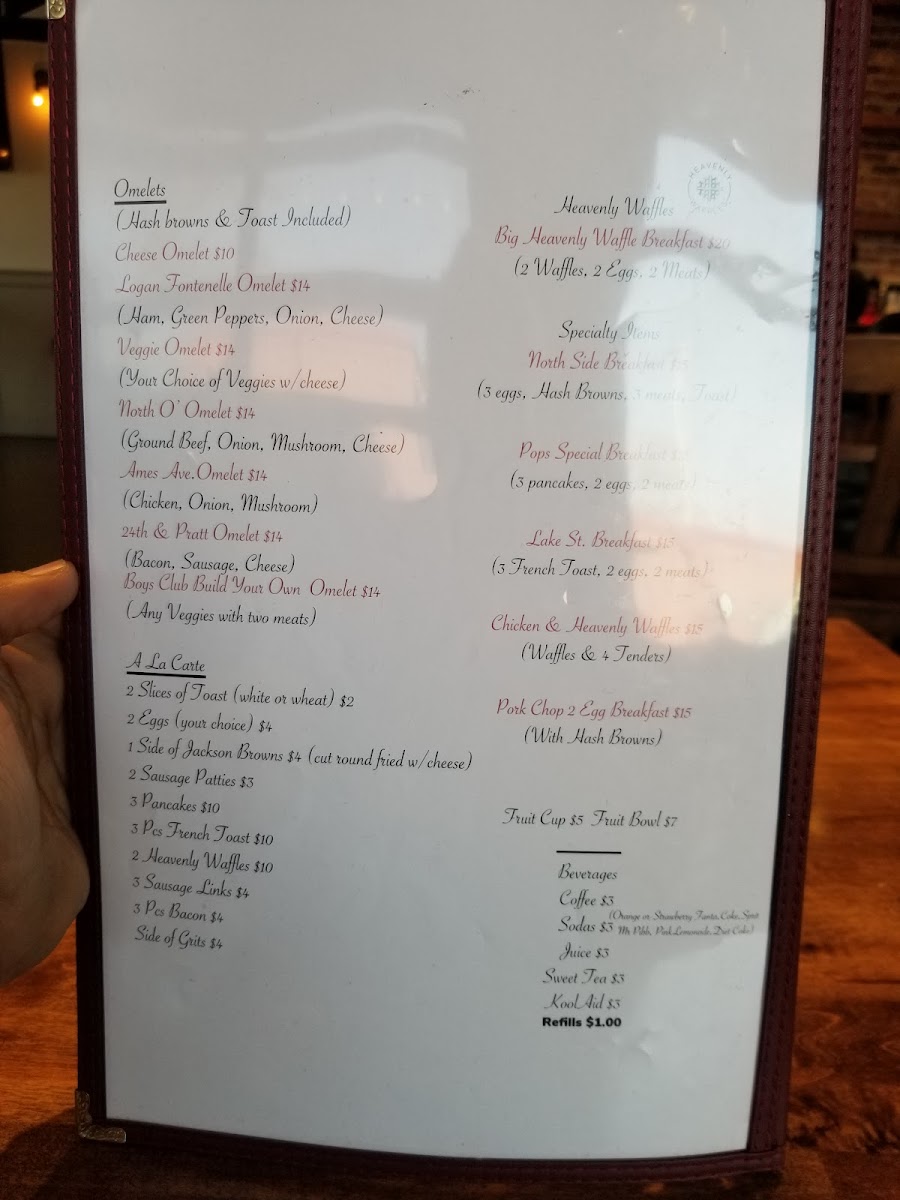 Omelets
(Hash browns & Toast Included)
Cheese Omelet $10
Logan Fontenelle Omelet $14
(Ham, Green Peppers, Onion, Cheese)
Veggie Omelet $14
(Your Choice of Veggies w/cheese)
North O' Omelet $14
(Ground Beef, Onion, Mushroom, Cheese)
Ames Ave.Omelet $14
(Chicken, Onion, Mushroom)
24th & Pratt Omelet $14
(Bacon, Sausage, Cheese)
Boys Club Build Your Own Omelet $14
(Any Veggies with two meats)
A La Carte
2 Slices of Toast (white or wheat) $2
2 Eggs (your choice) $4
1 Side of Jackson Browns $4 (cut round fried w/cheese)
2 Sausage Patties $3
3 Pancakes $10
3 Pcs French Toast $10
2 Heavenly Waffles $10
3 Sausage Links $4
3 Pcs Bacon $4
Side of Grits $4
HEAVENLY
Heavenly Waffles
Big Heavenly Waffle Breakfast $20
(2 Waffles, 2 Eggs, 2 Meats)
Specialty Items
North Side Breakfast
(3 eggs, Hash Browns, 3 meats, Toast)
Pops Special Breakfast
(3 pancakes, 2 eggs, 2 meats)
Lake St. Breakfast $15
(3 French Toast, 2 eggs, 2 meats)
Chicken & Heavenly Waffles $15
(Waffles & 4 Tenders)
Pork Chop 2 Egg Breakfast $15
(With Hash Browns)
Fruit Cup $5 Fruit Bowl $7
Beverages
Coffee $3
Sodas $3 (Orange or Strawberry Fanta, Coke, Sprit
Mr Pibb, Pink Lemonade, Diet Coke)
Juice $3
Sweet Tea $3
Kool Aid $3
Refills $1.00